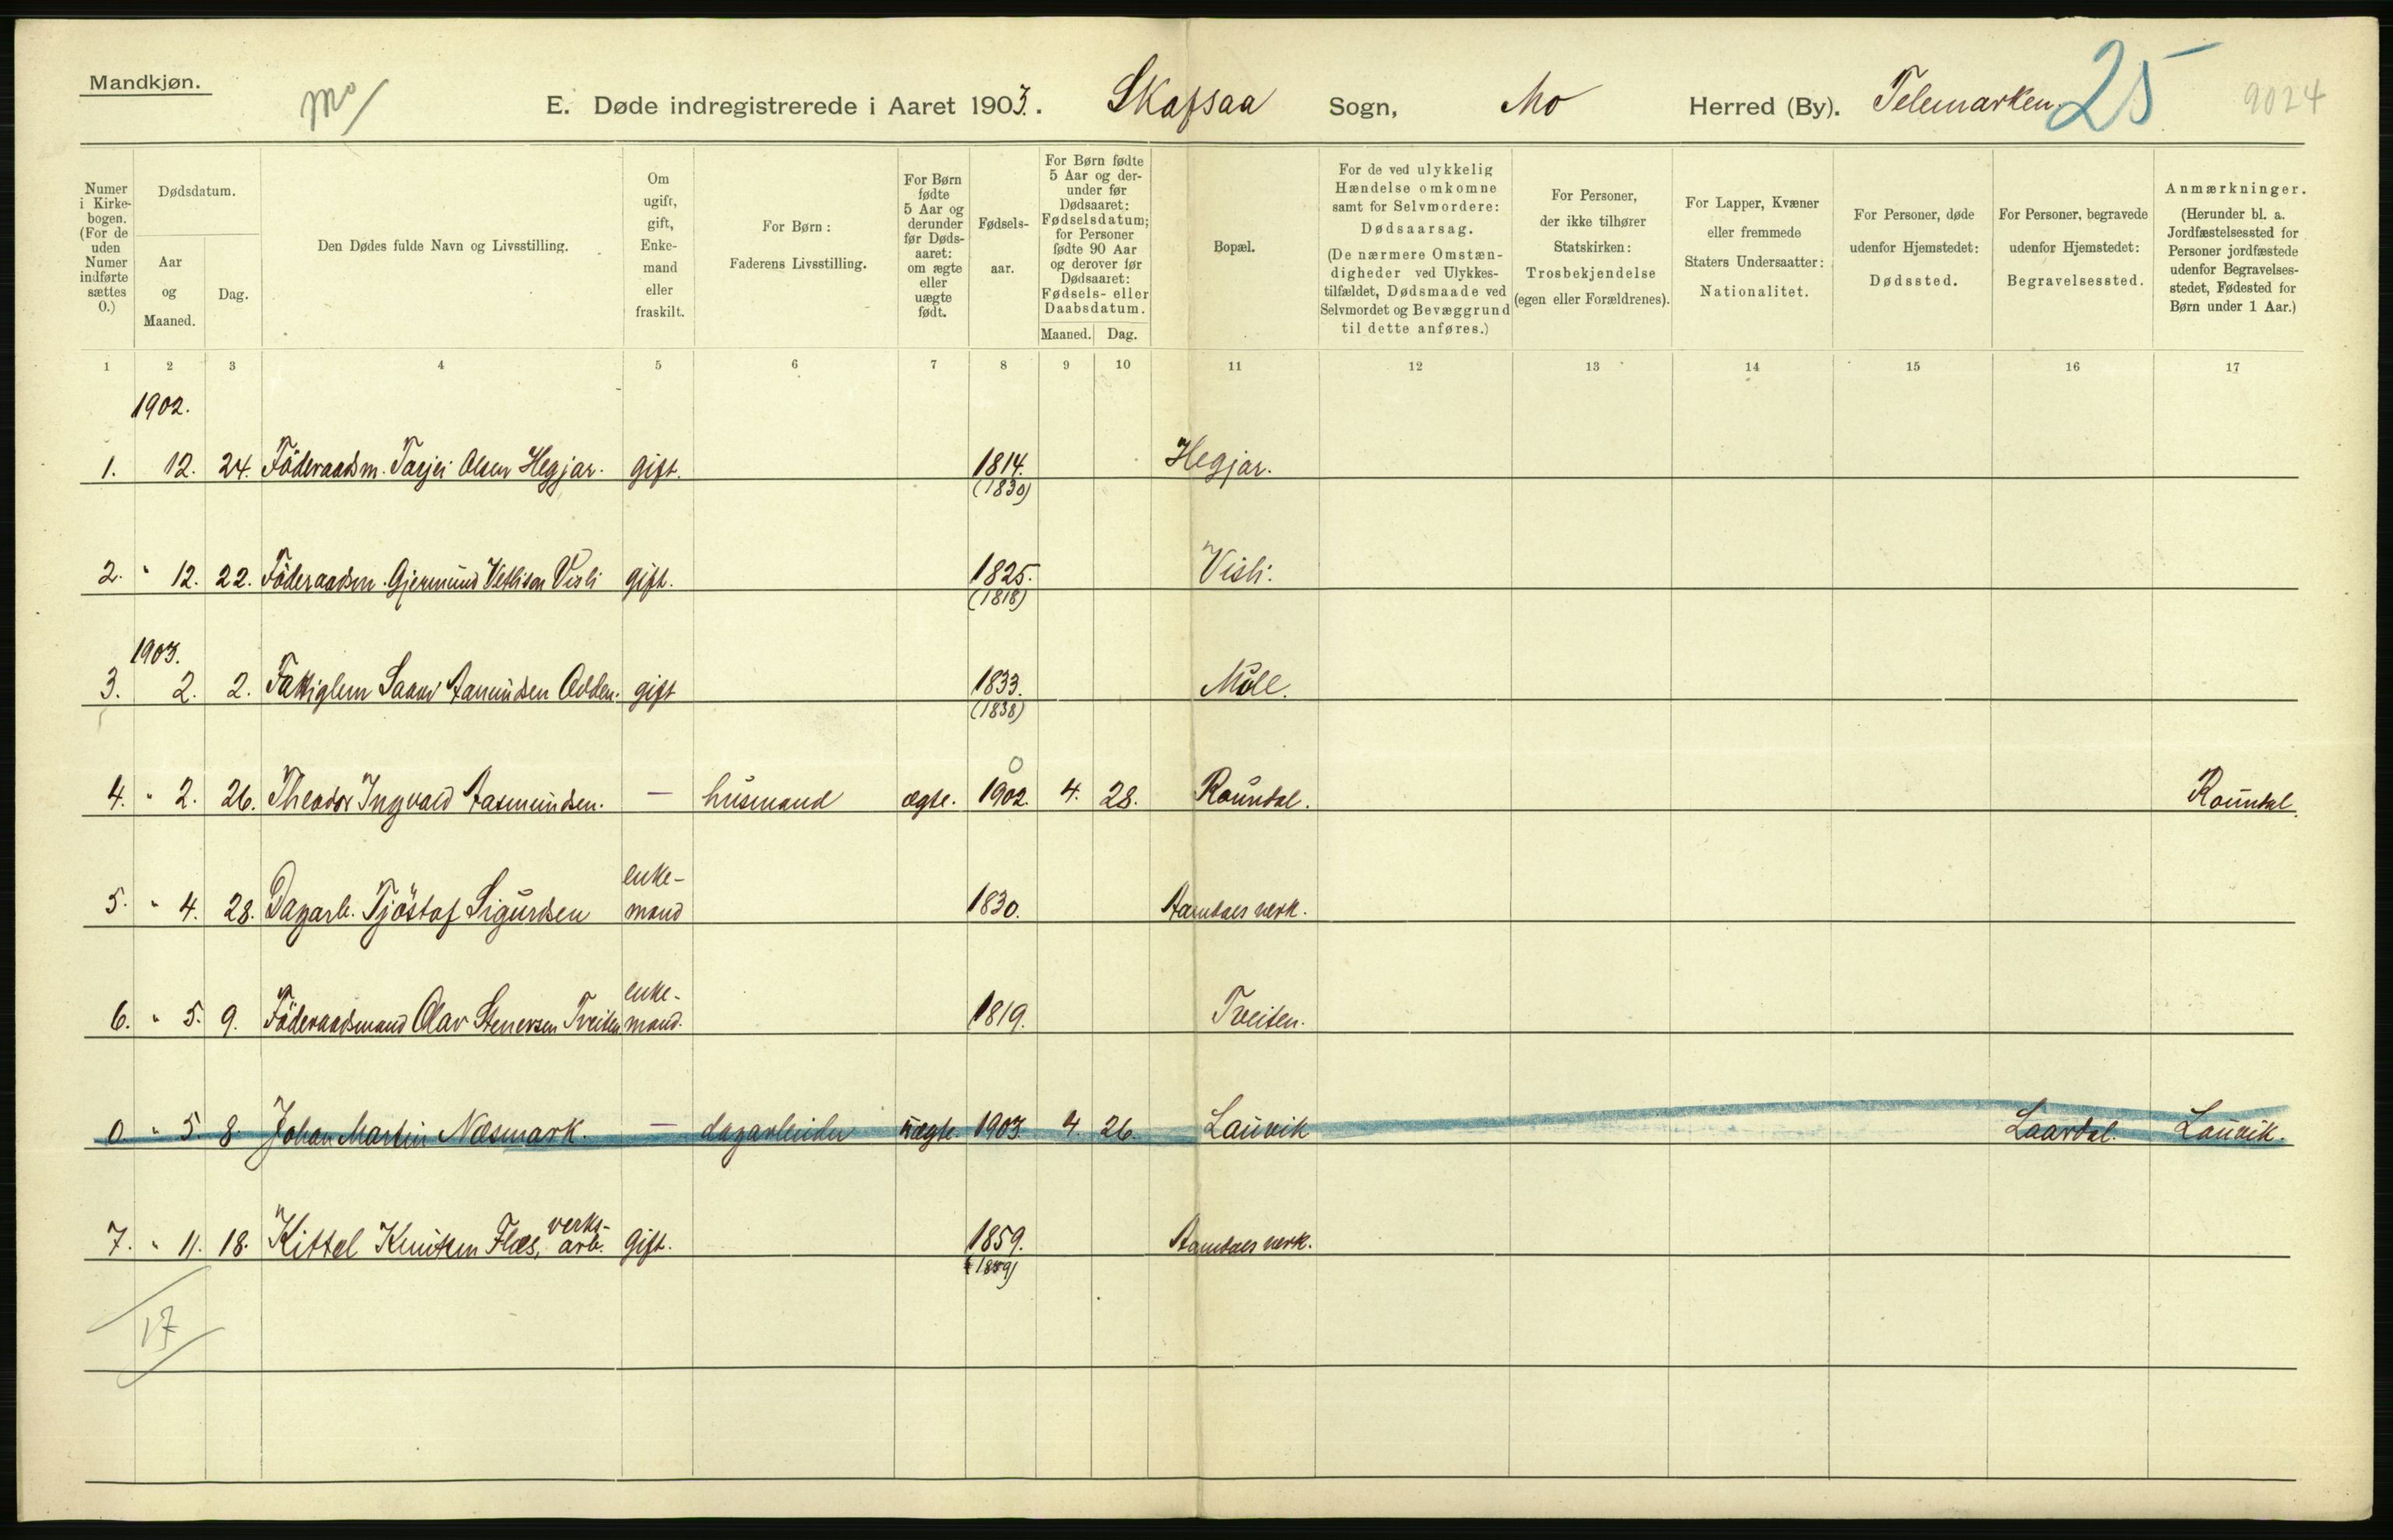 Mandkjøn.
Mo
E. Døde indregistrerede i Aaret 1903. Skafsaa Sogn, Mo Herred (By). Telemarken. 25 9024
Numer i Kirke- bogen. (For de uden Numer indførte sættes 0.)
Dødsdatum.
Aar og Maaned.
Dag.
Den Dødes fulde Navn og Livsstilling.
Om ugift, gift, Enke- mand eller fraskilt.
For Børn: Faderens Livsstilling.
For Børn fødte 5 Aar og derunder før Døds- aaret: om ægte eller uægte født.
Fødsels- aar.
For Børn fødte 5 Aar og der- under før Dødsaaret: Fødselsdatum; for Personer fødte 90 Aar og derover før Dødsaaret: Fødsels- eller Daabsdatum.
Maaned. Dag.
Bopæl.
For de ved ulykkelig Hændelse omkomne samt for Selvmordere: Dødsaarsag. (De nærmere Omstæn- digheder ved Ulykkes- tilfældet, Dødsmaade ved Selvmordet og Bevæggrund til dette anføres.)
For Personer, der ikke tilhører Statskirken: Trosbekjendelse (egen eller Forældrenes).
For Lapper, Kvæner eller fremmede Staters Undersaatter: Nationalitet.
For Personer, døde udenfor Hjemstedet: Dødssted.
For Personer, begravede udenfor Hjemstedet: Begravelsessted.
Anmærkninger. (Herunder bl. a. Jordfæstelsessted for Personer jordfæstede udenfor Begravelses- stedet, Fødested for Børn under 1 Aar.)
1 2 3 4 5 6 7 8 9 10 11 12 13 14 15 16 17
1902.
1. 12. 24. Föderaadsm. Tarjei Olsen Hegjar. gift. 1814. Hegjar.
(1830)
2. " 12. 22. Föderaadsm. Gjermund Vetlisen Visli gift. 1825. Visli.
(1818)
1903.
3. 2. 2. Fattiglem Aamundsen Odden. gift 1833.
(1838)
0
4. " 2. 26. Theodor Ingvald Aasmundsen. — husmand ægte. 1902. 4. 28. Raundal. Raundal.
enke-
5. " 4. 28. Dagarb. Tjöstof Sigurdsen mand 1830. Aamdals verk.
enke-
6. " 5. 9. Föderaadsmand Olav Stenersen Tveiten mand. 1819. Tveiten.
0. " 5. 8. Johan Martin Næsmark. — dagarbeider uægte. 1903. 4. 26. Lauvik Laardal. Lauvik.
verks-
7. " 11. 18. Kittel Knutsen Flæs, arb. gift. 1859. Aamdals verk.
(1859)
17